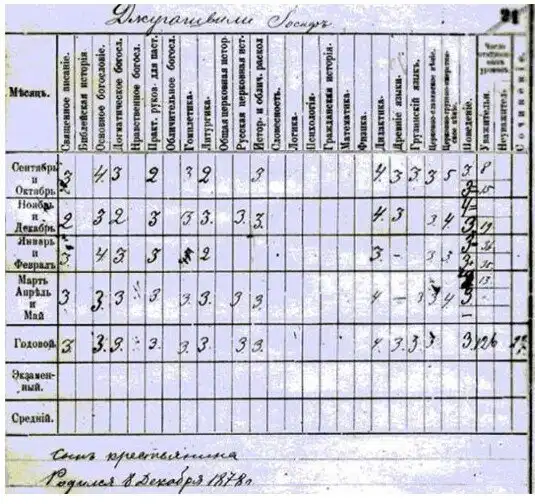 Джугашвили Iосифъ. 21
Мѣсяцъ. Священное писаніе. Библейская исторія Основное богословіе. Догматическое богосл. Нравственное богосл. Практ. руков. для паст. Обличительное богосл. Гомилетика. Литургика. Общая церковная истор Русская церковная ист. Истор. и облич. раскол Словесность. Логика. Психологія. Гражданская исторія. Математика. Физика. Дидактика. Древніе языки. Грузинскій языкъ. Поведеніе. Уважительн. Неуважител. Сочиненіе.
Сентябрь и Октябрь 3 4 3 2 3 2 3 4 3 3 3 5 3 8
3 15
Ноябрь и Декабрь 2 3 2 3 3 3 3 3 4 3 3 4 4
3 19
Январь и Февраль 3 4 3 3 2 3 - 3 3 3
3
Мартъ Апрѣль и Май 3 3 3 3 3 3 3 3 4 - 3 3 4 13
3
Годовой. 3 3 3 3 3 3 3 4 3 3 3 3 126
Экзаменный.
Средній.
Сынъ крестьянина
Родился 6 Декабря 1878 г